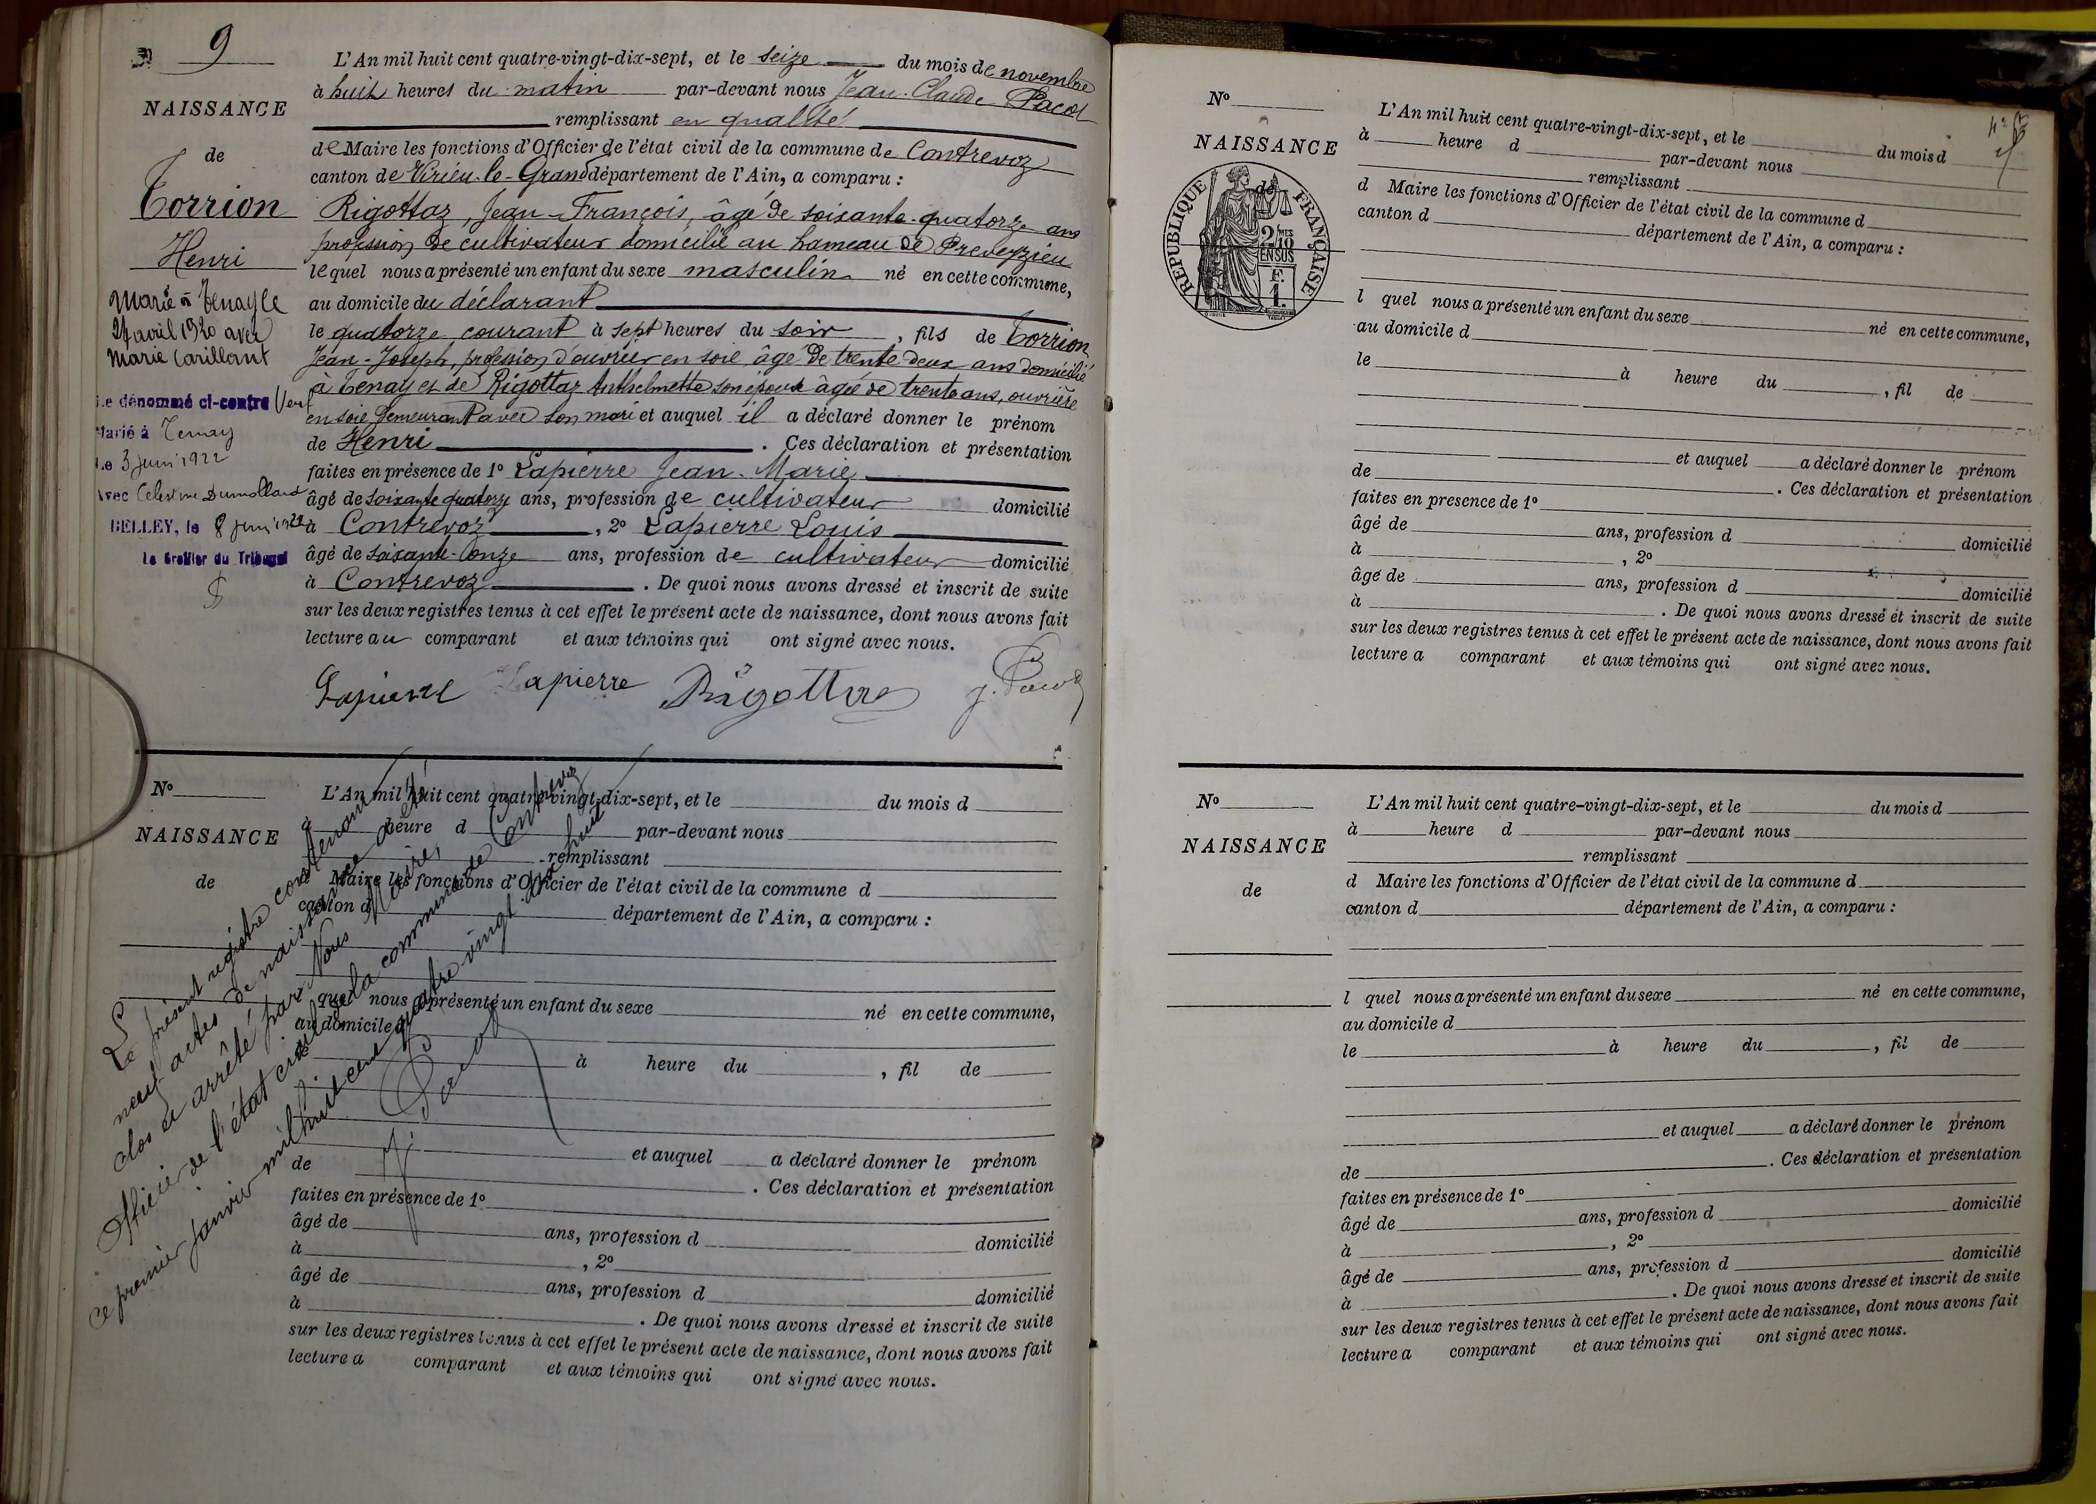 9
NAISSANCE
de
Torrion
Henri
Marié à Tenay le
24 avril 1920 avec
Marie Carillant
Le dénommé ci-contre
Marié à Tenay
Le 3 Juin 1922
Avec Celestine Dumollard
BELLEY, le 8 Juin 1922
Le Greffier du Tribunal
L'An mil huit cent quatre-vingt-dix-sept, et le seize du mois de novembre
à huit heures du matin par-devant nous Jean-Claude Pacot
remplissant en qualité
de Maire les fonctions d'Officier de l'état civil de la commune de Contrevoz
canton de Virieu-le-Grand département de l'Ain, a comparu :
Rigottaz, Jean-François, âgé de soixante-quatorze ans
profession de cultivateur domicilié au hameau de Preveyzieu
lequel nous a présenté un enfant du sexe masculin né en cette commune,
au domicile du déclarant
le quatorze courant à sept heures du soir, fils de Torrion
Jean-Joseph, profession d'ouvrier en soie âgé de trente deux ans domicilié
à Tenay et de Rigottaz Anthelmette son épouse âgée de trente ans, ouvrière
en soie demeurant avec son mari et auquel il a déclaré donner le prénom
de Henri. Ces déclaration et présentation
faites en présence de 1º Lapierre Jean-Marie
âgé de soixante quatorze ans, profession de cultivateur domicilié
à Contrevoz, 2º Lapierre Louis
âgé de soixante-onze ans, profession de cultivateur domicilié
à Contrevoz. De quoi nous avons dressé et inscrit de suite
sur les deux registres tenus à cet effet le présent acte de naissance, dont nous avons fait
lecture au comparant et aux témoins qui ont signé avec nous.
Lapierre Lapierre Rigottaz J. Pacot
Nº
NAISSANCE
de
L'An mil huit cent quatre-vingt-dix-sept, et le du mois d
à heure d par-devant nous
remplissant
d Maire les fonctions d'Officier de l'état civil de la commune d
canton d département de l'Ain, a comparu :
l quel nous a présenté un enfant du sexe né en cette commune,
au domicile d
le à heure du , fil de
et auquel a déclaré donner le prénom
de . Ces déclaration et présentation
faites en présence de 1º
âgé de ans, profession d domicilié
à , 2º
âgé de ans, profession d domicilié
à . De quoi nous avons dressé et inscrit de suite
sur les deux registres tenus à cet effet le présent acte de naissance, dont nous avons fait
lecture a comparant et aux témoins qui ont signé avec nous.
Le présent registre contenant
neuf actes de naissance a été
clos et arrêté par Nous Maire,
Officier de l'état civil de la commune de Contrevoz
ce premier janvier mil huit cent quatre vingt dix huit
J. Pacot
Nº
NAISSANCE
de
RÉPUBLIQUE FRANÇAISE
2/10 MES
EN SUS
F.
1.
L'An mil huit cent quatre-vingt-dix-sept, et le du mois d
à heure d par-devant nous
remplissant
d Maire les fonctions d'Officier de l'état civil de la commune d
canton d département de l'Ain, a comparu :
l quel nous a présenté un enfant du sexe né en cette commune,
au domicile d
le à heure du , fil de
et auquel a déclaré donner le prénom
de . Ces déclaration et présentation
faites en presence de 1º
âgé de ans, profession d domicilié
à , 2º
âgé de ans, profession d domicilié
à . De quoi nous avons dressé et inscrit de suite
sur les deux registres tenus à cet effet le présent acte de naissance, dont nous avons fait
lecture a comparant et aux témoins qui ont signé avec nous.
Nº
NAISSANCE
de
L'An mil huit cent quatre-vingt-dix-sept, et le du mois d
à heure d par-devant nous
remplissant
d Maire les fonctions d'Officier de l'état civil de la commune d
canton d département de l'Ain, a comparu :
l quel nous a présenté un enfant du sexe né en cette commune,
au domicile d
le à heure du , fil de
et auquel a déclaré donner le prénom
de . Ces déclaration et présentation
faites en présence de 1º
âgé de ans, profession d domicilié
à , 2º
âgé de ans, profession d domicilié
à . De quoi nous avons dressé et inscrit de suite
sur les deux registres tenus à cet effet le présent acte de naissance, dont nous avons fait
lecture a comparant et aux témoins qui ont signé avec nous.